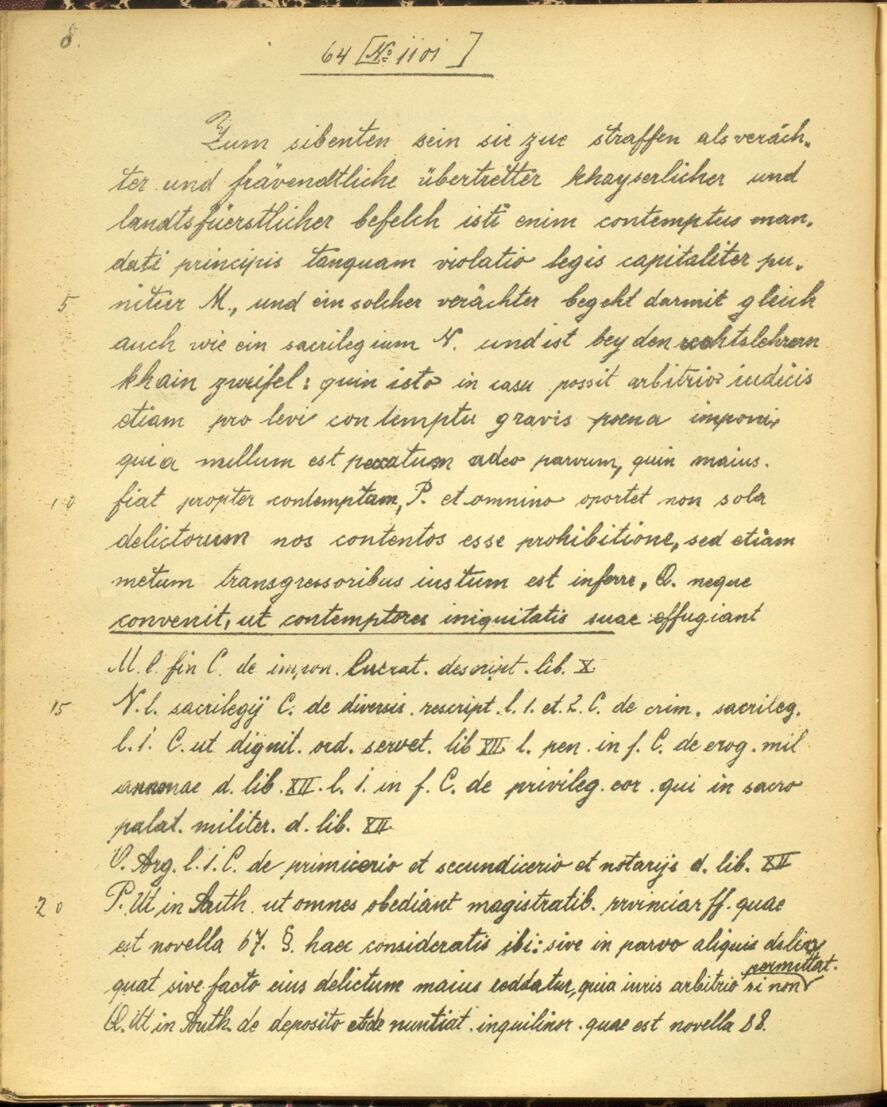 8.
64 [№ 1101]
Zum sibenten sein sie zue straffen als veräch-
ter und frävendtliche übertretter khayserlicher und
landtsfüerstlicher befelch isti enim contemptus man-
dati principis tanquam violatio legis capitaliter pu-
5 nitur M., und ein solcher verächter begeht darmit gleich
auch wie ein sacrilegium N. und ist bey den rechtslehrern
khain zweifel: quin isto in casu possit arbitrio iudicis
etiam pro levi contemptu gravis poena imponi,
quia nullum est peccatum adeo parvum, quin maius.
10 fiat propter contemptam, P. et omnino oportet non sola
delictorum nos contentos esse prohibitione, sed etiam
metum transgressoribus iustum est inferre, Q. neque
convenit, ut contemptores iniquitatis suae effugiant
M. l. fin C. de impon. lucrat. descript. lib. X
15 N. l. sacrilegij C. de diversis. rescript. l. 1. et. 2. C. de crim. sacrileg.
l. 1. C. ut dignit. ord. servet. lib XII l. pen. in f. C. de erog. mil
annonae d. lib. XII. l. 1. in f. C. de privileg. eor. qui in sacro
palat. militer. d. lib. XII
O. Arg. l. 1. C. de primicerio et secundicerio et notarijs d. lib. XII
20 P. Ut in Auth. ut omnes obediant magistratib. provinciar ff. quae
est novella 67. §. haec consideratis ibi: sive in parvo aliquis delin-
quat sive facto eius delictum maius reddatur, quia iuris arbitrio si non permittat.
Q. Ut in Auth. de deposito et de nuntiat. inquilinor. quae est novella 88.